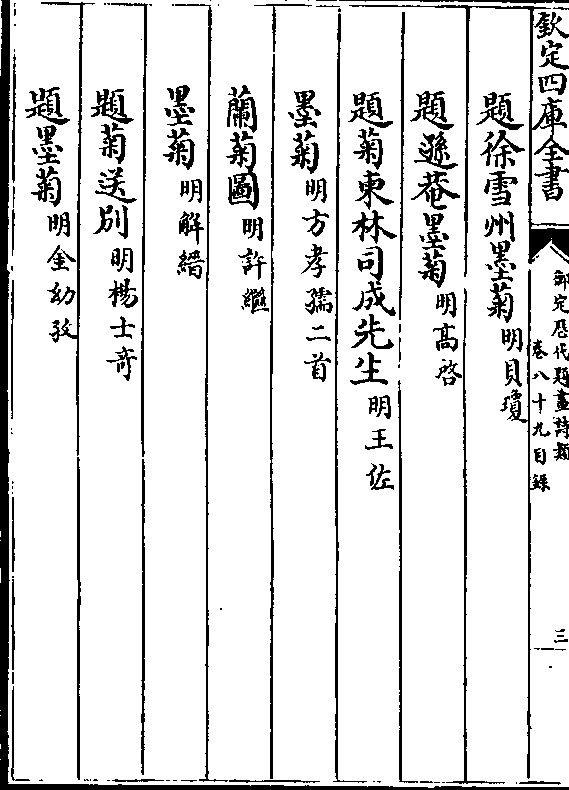 欽定四庫全書
御定歷代題畫詩類
卷八十九目錄
三
題徐雪州墨菊明貝瓊
題遯菴墨菊明高啓
題菊柬林司成先生明王佐
墨菊明方孝孺二首
蘭菊圖明許繼
墨菊明解縉
題菊送別明楊士奇
題墨菊明金幼孜